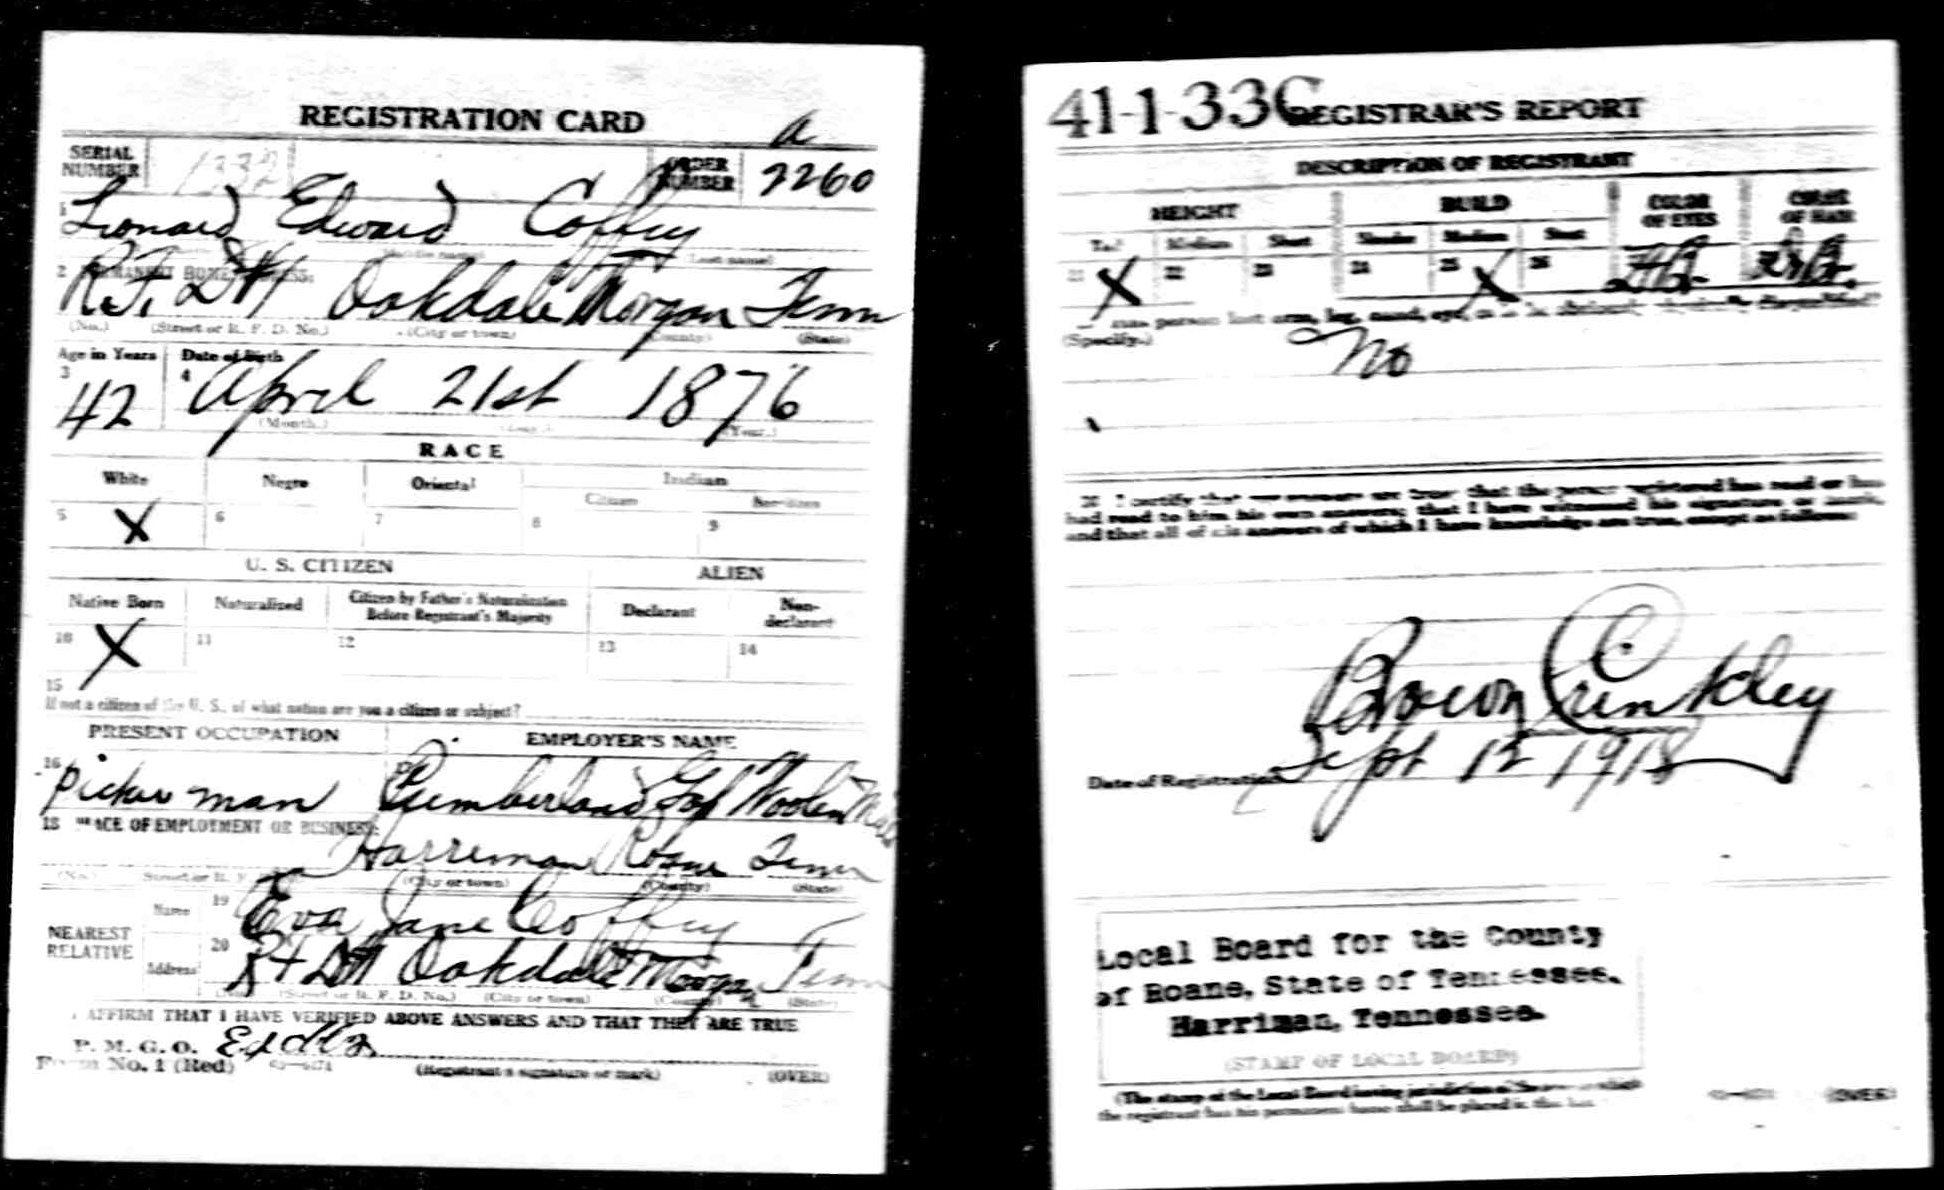 REGISTRATION CARD
a
SERIAL NUMBER 1332 ORDER NUMBER 2260
1 Leonard Edward Coffey
(Middle name) (Last name)
2 PERMANENT HOME ADDRESS:
R.F.D #1 Oakdale Morgan Tenn
(No.) (Street or R. F. D. No.) (City or town) (County) (State)
Age in Years Date of Birth
3 42 4 April 21st 1876
(Month.) (Day.) (Year.)
RACE
White Negro Oriental Indian
Citizen Noncitizen
5 X 6 7 8 9
U. S. CITIZEN ALIEN
Native Born Naturalized Citizen by Father's Naturalization Before Registrant's Majority Declarant Non-declarant
10 X 11 12 13 14
15
If not a citizen of the U. S., of what nation are you a citizen or subject?
PRESENT OCCUPATION EMPLOYER'S NAME
16 Picker man Cumberland Gap Woolen Mills
18 PLACE OF EMPLOYMENT OR BUSINESS:
Harriman Roane Tenn
(No.) (Street or R. F. (City or town) (County) (State)
NEAREST RELATIVE
Name 19 Eva Jane Coffey
Address 20 Oakdale Morgan Tenn
(No.) (Street or R. F. D. No.) (City or town) (County) (State)
I AFFIRM THAT I HAVE VERIFIED ABOVE ANSWERS AND THAT THEY ARE TRUE
P. M. G. O.
Form No. 1 (Red) (Registrant's signature or mark) (OVER)
41-1-33 C REGISTRAR'S REPORT
DESCRIPTION OF REGISTRANT
HEIGHT BUILD COLOR OF EYES COLOR OF HAIR
Tall Medium Short Slender Medium Stout
21 X 22 23 24 25 X 26
Has person lost arm, leg, hand, eye, or is he obviously physically disqualified?
(Specify.)
No
30 I certify that my answers are true; that the person registered has read or has
had read to him his own answers; that I have witnessed his signature or mark,
and that all of his answers of which I have knowledge are true, except as follows:
Date of Registration Sept 12 1918
Local Board for the County
of Roane, State of Tennessee.
Harriman, Tennessee.
(STAMP OF LOCAL BOARD)
(The stamp of the Local Board having jurisdiction of the area in which
the registrant has his permanent home shall be placed in this box.)
(OVER)